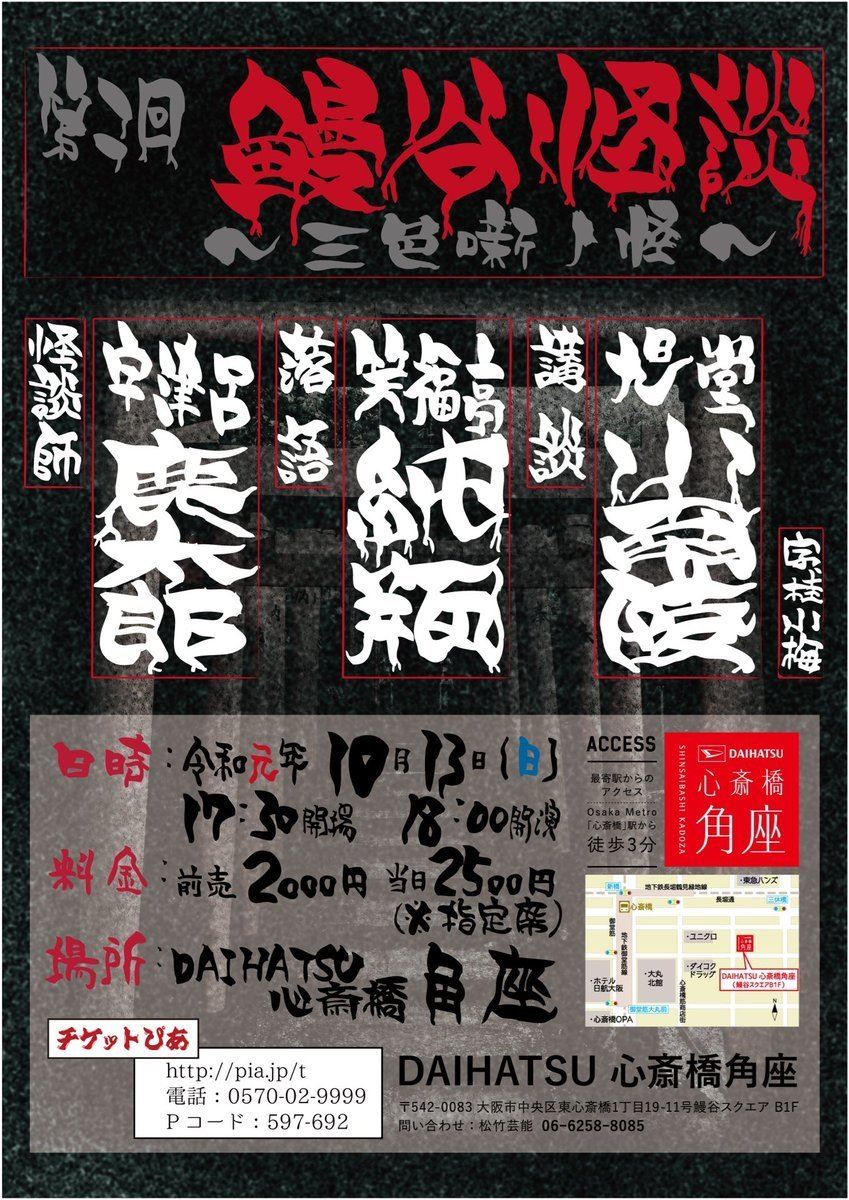 鰻谷怪談
～三色噺ノ怪～
講談
旭堂
小南陵
落語
笑福亭
純瓶
怪談師
宇津呂
鹿太郎
字:桂小梅
日時：令和元年10月13日(日)
17:30開場 18:00開演
料金：前売2000円 当日2500円
(※指定席)
場所：DAIHATSU
心斎橋 角座
ACCESS
最寄駅からの
アクセス
Osaka Metro
「心斎橋」駅から
徒歩3分
DAIHATSU
心斎橋
角座
SHINSAIBASHI KADOZA
・東急ハンズ
新橋
地下鉄長堀鶴見緑地線
心斎橋
長堀通
三休橋
御堂筋
地下鉄御堂筋線
・ユニクロ
心斎橋
角座
・ホテル
日航大阪
・大丸
北館
・ダイコク
ドラッグ
DAIHATSU 心斎橋角座
(鰻谷スクエアB1F)
心斎橋筋商店街
御堂筋大丸前
・心斎橋OPA
N
チケットぴあ
http://pia.jp/t
電話：0570-02-9999
Pコード：597-692
DAIHATSU 心斎橋角座
〒542-0083 大阪市中央区東心斎橋1丁目19-11号鰻谷スクエア B1F
問い合わせ：松竹芸能 06-6258-8085